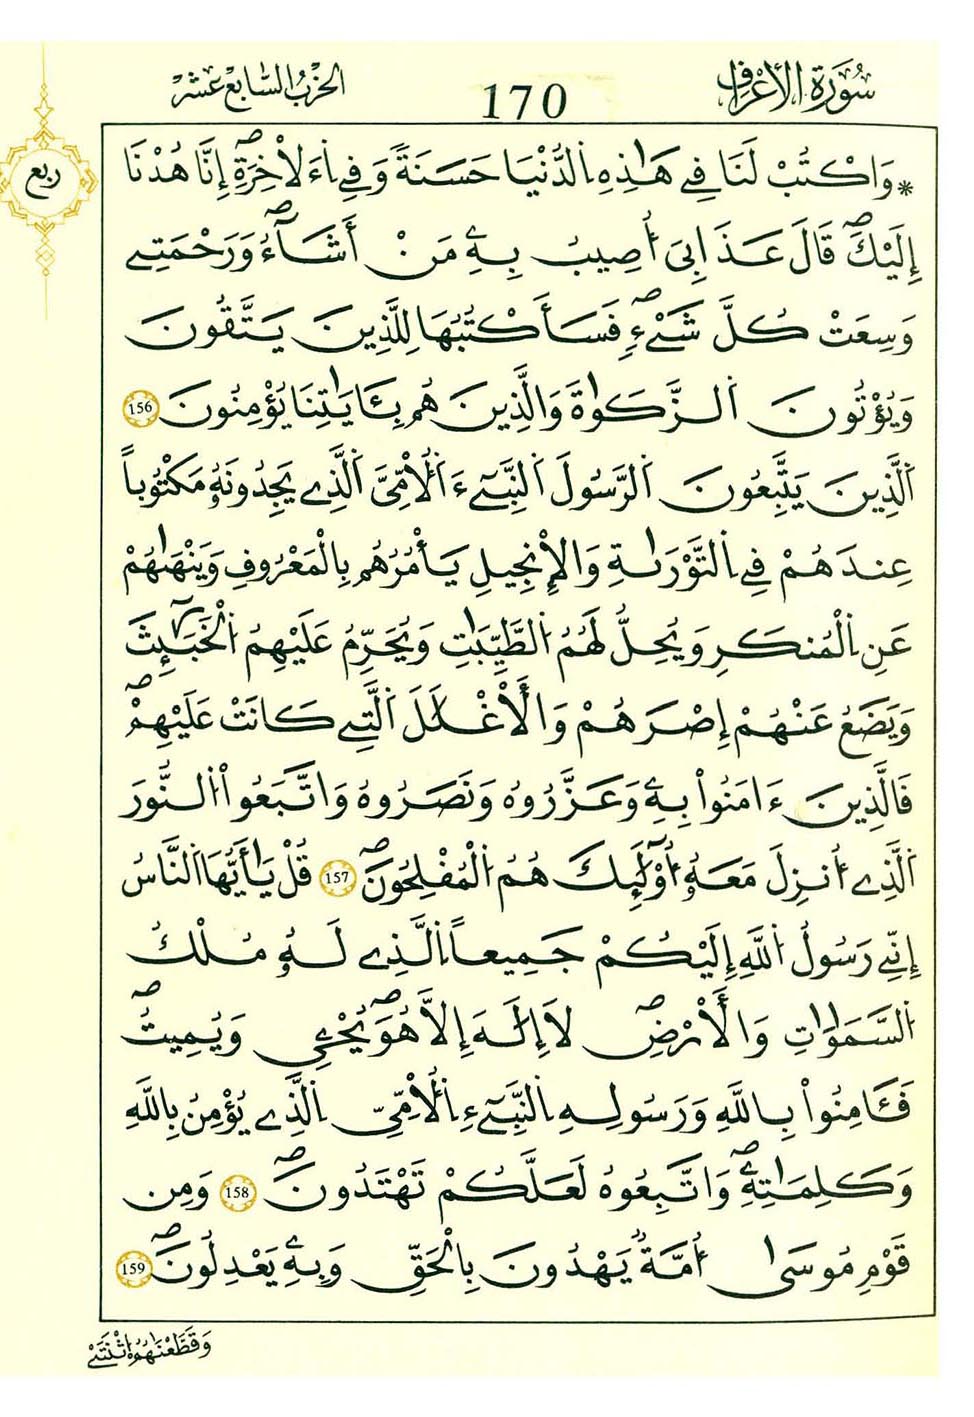 سُورَةُ الأَعْرَافِ 170 الحِزْبُ السَّابِعَ عَشَرَ
ربع
* وَاكْتُبْ لَنَا فِے هَٰذِهِ اِ۬لدُّنْيَا حَسَنَةٗ وَفِے اِ۬ءَلَاخِرَةِۖ إِنَّا هُدْنَا
إِلَيْكَۖ قَالَ عَذَابِيَ أُصِيبُ بِهِۦ مَنْ أَشَآءُۖ وَرَحْمَتِے
وَسِعَتْ كُلَّ شَےْءٖۖ فَسَأَكْتُبُهَا لِلَّذِينَ يَتَّقُونَ
وَيُؤْتُونَ اَ۬لزَّكَوٰةَ وَالَّذِينَ هُم بِـَٔايَٰتِنَا يُؤْمِنُونَ 156
اَ۬لَّذِينَ يَتَّبِعُونَ اَ۬لرَّسُولَ اَ۬لنَّبِےٓءَ اَ۬لُامِّيَّ اَ۬لَّذِے يَجِدُونَهُۥ مَكْتُوباً
عِندَهُمْ فِے اِ۬لتَّوْرَىٰةِ وَالْإِنْجِيلِ يَأْمُرُهُم بِالْمَعْرُوفِ وَيَنْهَىٰهُمْ
عَنِ اِ۬لْمُنكَرِ وَيُحِلُّ لَهُمُ اُ۬لطَّيِّبَٰتِ وَيُحَرِّمُ عَلَيْهِمُ اُ۬لْخَبَٰٓئِثَ
وَيَضَعُ عَنْهُمْ إِصْرَهُمْ وَالْأَغْلَٰلَ اَ۬لتِے كَانَتْ عَلَيْهِمْۖ
فَالَّذِينَ ءَامَنُواْ بِهِۦ وَعَزَّرُوهُ وَنَصَرُوهُ وَاتَّبَعُواْ اُ۬لنُّورَ
اَ۬لَّذِے أُنزِلَ مَعَهُۥ أُوْلَٰٓئِكَ هُمُ اُ۬لْمُفْلِحُونَۖ 157 قُلْ يَٰأَيُّهَا اَ۬لنَّاسُ
إِنِّے رَسُولُ اُ۬للَّهِ إِلَيْكُمْ جَمِيعاً اَ۬لَّذِے لَهُۥ مُلْكُ
اُ۬لسَّمَٰوَٰتِ وَالْأَرْضِۖ لَا إِلَٰهَ إِلَّا هُوَۖ يُحْيِۦ وَيُمِيتُۖ
فَـَٔامِنُواْ بِاللَّهِ وَرَسُولِهِ اِ۬لنَّبِےٓءِ اِ۬لُامِّيِّ اِ۬لَّذِے يُؤْمِنُ بِاللَّهِ
وَكَلِمَٰتِهِۦۖ وَاتَّبِعُوهُ لَعَلَّكُمْ تَهْتَدُونَۖ 158 وَمِن
قَوْمِ مُوسَىٰ أُمَّةٞ يَهْدُونَ بِالْحَقِّ وَبِهِۦ يَعْدِلُونَۖ 159
وَقَطَّعْنَٰهُمُ اُ۪ثْنَتَےْ